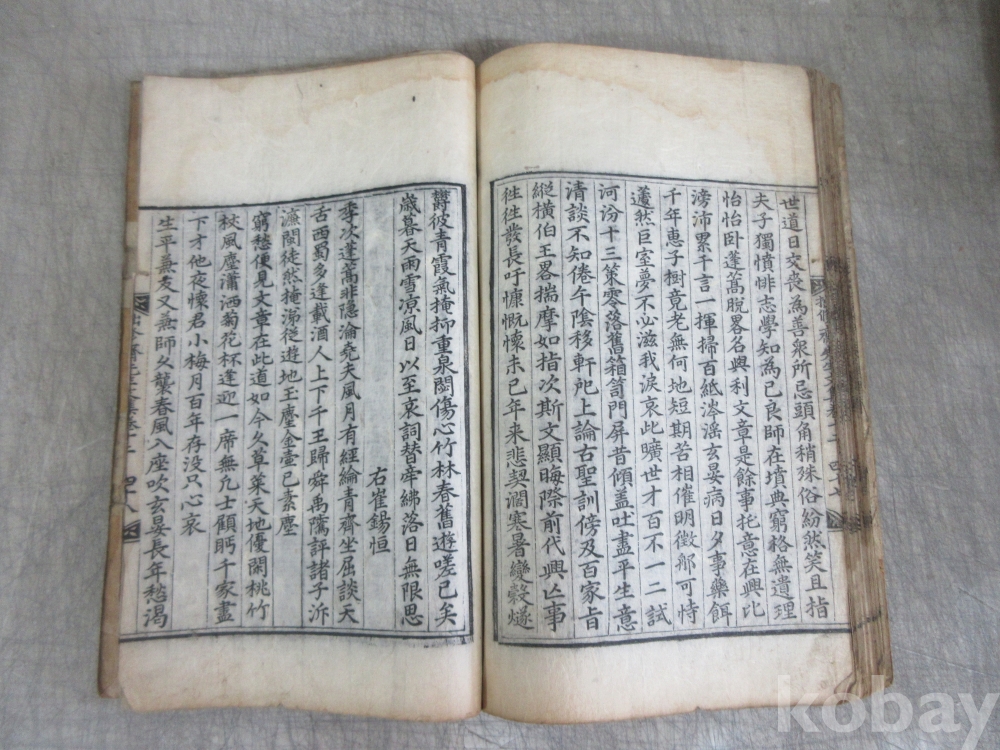 世道日交喪為善衆所忌頭角稍殊俗紛然笑且指
夫子獨憤悱志學知為己良師在墳典窮格無遺理
怡怡卧蓬蒿脫畧名與利文章是餘事托意在興比
滂沛累千言一揮掃百紙涔淫玄晏病日夕事藥餌
千年惠子樹竟老無何地短期苦相催明徵鄰可恃
蘧然巨室夢不必滋我淚哀此曠世才百不一二試
河汾十三策零落舊箱笥門屏昔傾盖吐盡平生意
清談不知倦午陰移軒戺上論古聖訓傍及百家旨
縱橫伯王畧揣摩如指次斯文顯晦際前代興亡事
徃徃發長吁慷慨懷未已年来悲契濶寒暑變穀燧
欝彼青霞氣掩抑重泉閟傷心竹林春舊遊嗟已矣
歲暮天雨雪凉風日以至哀詞替牽紼落日無限思
右崔錫恒
季次蓬蒿非隱淪堯夫風月有經綸青齋坐屈談天
舌西蜀多逢載酒人上下千王歸舜禹薦評諸子泝
濂閩徒然掩涕從遊地玉麈金壺已素塵
窮愁便見文章在此道如今久草萊天地優閑桃竹
杖風塵瀟洒菊花杯逢迎一席無凢士顧眄千家盡
下才他夜懷君小梅月百年存沒只心哀
生平兼友又兼師久襲春風入座吹玄晏長年愁渴
四十八
kobay